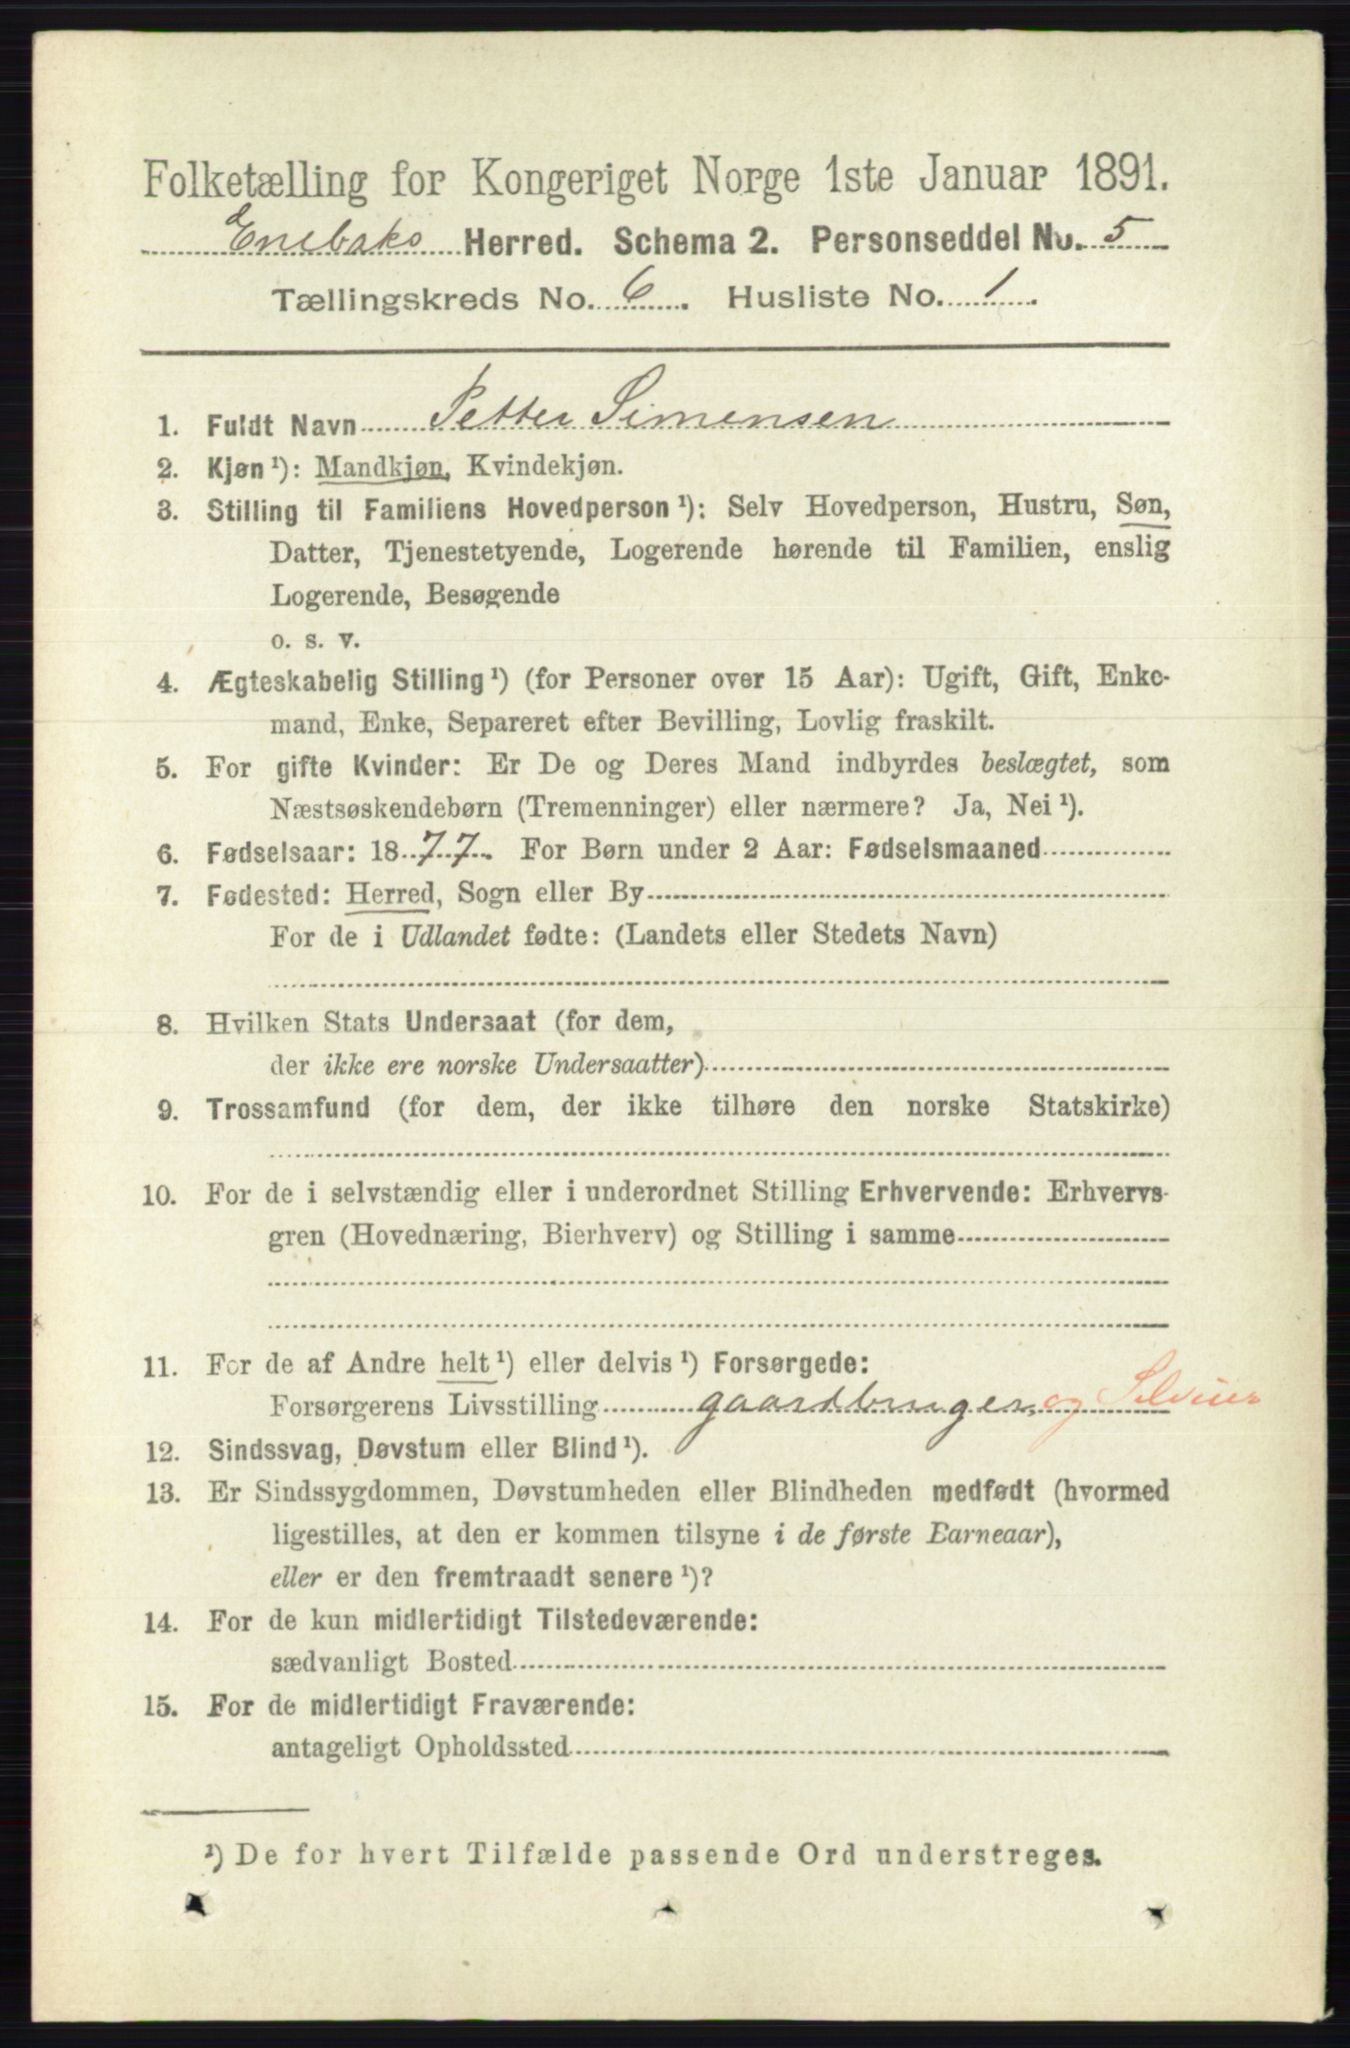 Folketælling for Kongeriget Norge 1ste Januar 1891.
Enebaks Herred. Schema 2. Personseddel No. 5
Tællingskreds No. 6. Husliste No. 1.
1. Fuldt Navn Petter Simensen
2. Kjøn ¹): Mandkjøn, Kvindekjøn.
3. Stilling til Familiens Hovedperson ¹): Selv Hovedperson, Hustru, Søn,
Datter, Tjenestetyende, Logerende hørende til Familien, enslig
Logerende, Besøgende
o. s. v.
4. Ægteskabelig Stilling ¹) (for Personer over 15 Aar): Ugift, Gift, Enke-
mand, Enke, Separeret efter Bevilling, Lovlig fraskilt.
5. For gifte Kvinder: Er De og Deres Mand indbyrdes beslægtet, som
Næstsøskendebørn (Tremenninger) eller nærmere? Ja, Nei ¹).
6. Fødselsaar: 1877. For Børn under 2 Aar: Fødselsmaaned
7. Fødested: Herred, Sogn eller By
For de i Udlandet fødte: (Landets eller Stedets Navn)
8. Hvilken Stats Undersaat (for dem,
der ikke ere norske Undersaatter)
9. Trossamfund (for dem, der ikke tilhøre den norske Statskirke)
10. For de i selvstændig eller i underordnet Stilling Erhvervende: Erhvervs-
gren (Hovednæring, Bierhverv) og Stilling i samme
11. For de af Andre helt ¹) eller delvis ¹) Forsørgede:
Forsørgerens Livsstilling gaardbruger og Selveier
12. Sindssvag, Døvstum eller Blind ¹).
13. Er Sindssygdommen, Døvstumheden eller Blindheden medfødt (hvormed
ligestilles, at den er kommen tilsyne i de første Barneaar),
eller er den fremtraadt senere ¹)?
14. For de kun midlertidigt Tilstedeværende:
sædvanligt Bosted
15. For de midlertidigt Fraværende:
antageligt Opholdssted
¹) De for hvert Tilfælde passende Ord understreges.